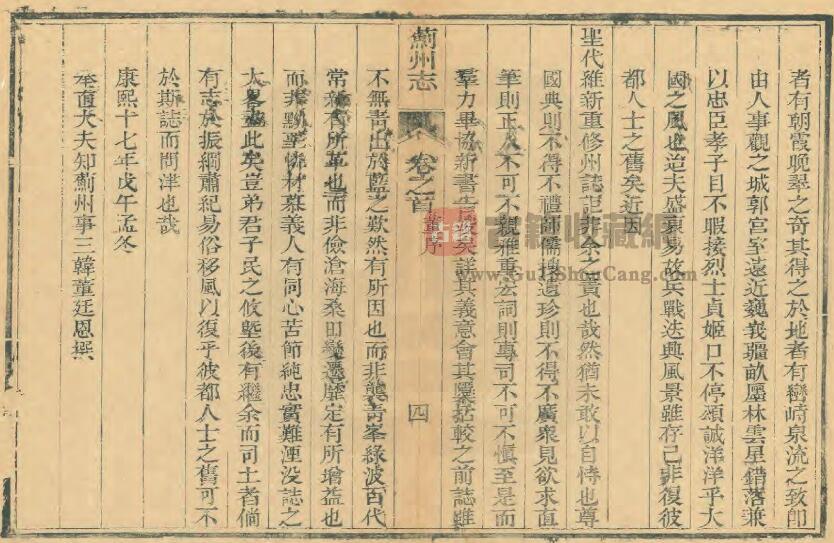 者有朝霞晚翠之奇其得之於地者有巒崎泉流之致即
由人事觀之城郭宮室遠近巍峩疆畝屬林雲星錯落兼
以忠臣孝子目不暇接烈士貞姬口不停頌誠洋洋乎大
國之風也迨夫盛衰易故兵戰迭興風景雖存已非復彼
都人士之舊矣近因
聖代維新重修州誌詎非余之責也哉然猶未敢以自恃也尊
國典則不得不禮師儒搜遺珍則不得不廣衆見欲求直
筆則正人不可不親雅重宏詞則專司不可不慎至是而
羣力畢協新書告矣謹其義意會其隱括較之前誌雖
薊州志
卷之首
董序
四
不無青出於藍之歎然有所因也而非襲青峯綠波百代
常新有所革也而非儉滄海桑田變遷靡定有所增益也
而非黔聖材慕義人有同心苦節純忠實難湮没誌之
大畧此矣豈弟君子民之攸塈後有繼余而司土者倘
有志於振綱肅紀易俗移風以復乎彼都人士之舊可不
於斯誌而問津也哉
康熙十七年戊午孟冬
奉直大夫知薊州事三韓董廷恩撰
古籍收藏網
www.GuJiShouCang.com